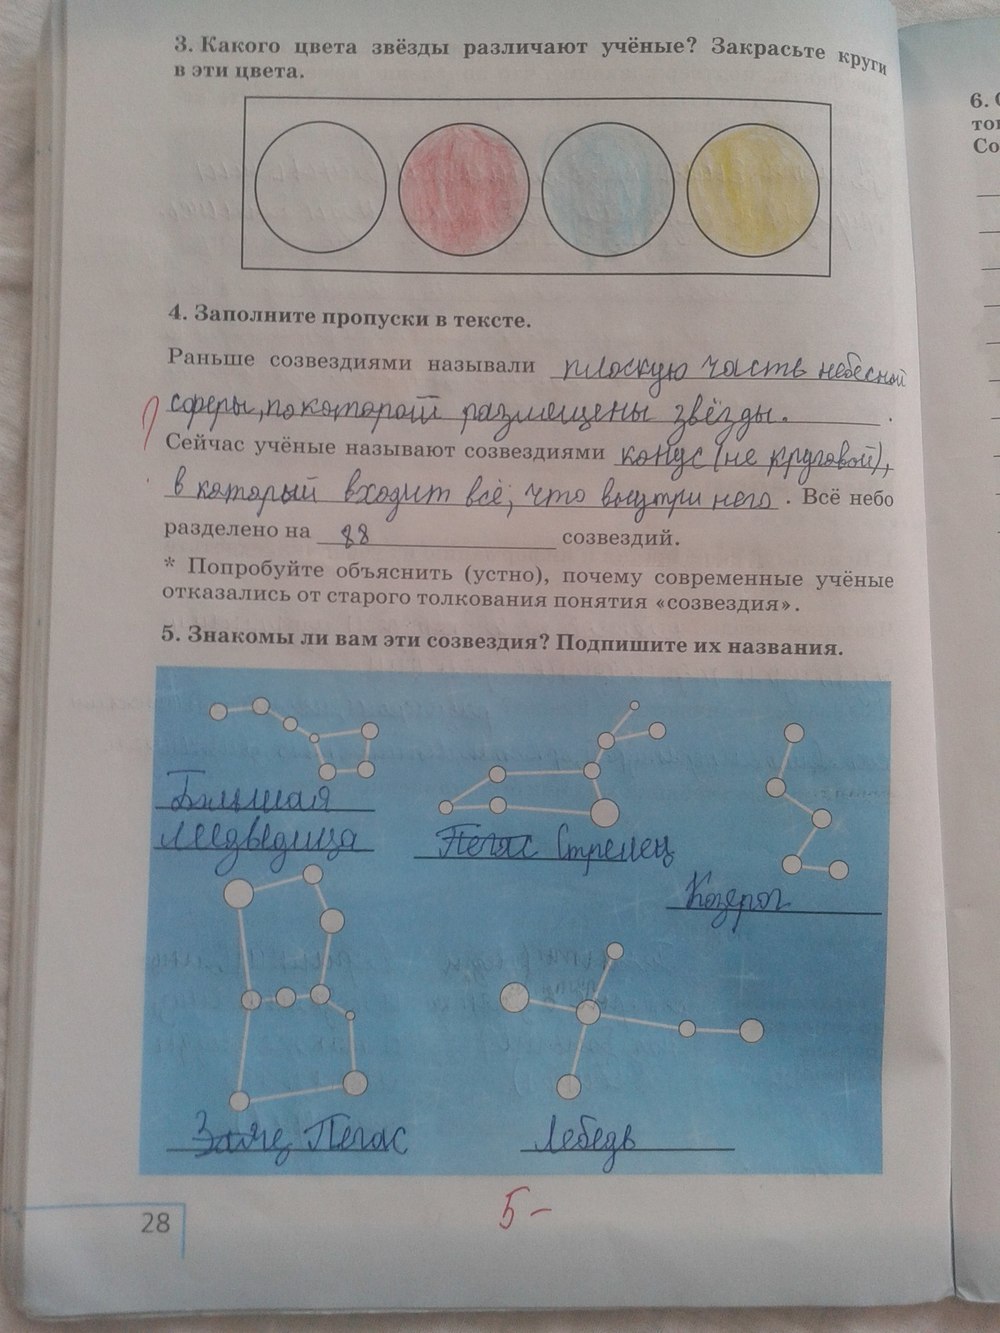 3. Какого цвета звёзды различают учёные? Закрасьте круги
в эти цвета.
6. С
4. Заполните пропуски в тексте.
Раньше созвездиями называли плоскую часть небесной
сферы, по которой размещены звёзды. .
Сейчас учёные называют созвездиями конус (не круговой),
в который входит всё, что внутри него . Всё небо
разделено на 88 созвездий.
* Попробуйте объяснить (устно), почему современные учёные
отказались от старого толкования понятия «созвездия».
5. Знакомы ли вам эти созвездия? Подпишите их названия.
Большая
Медведица
Пегас Стрелец
Козерог
Заяц Пегас
Лебедь
5-
28